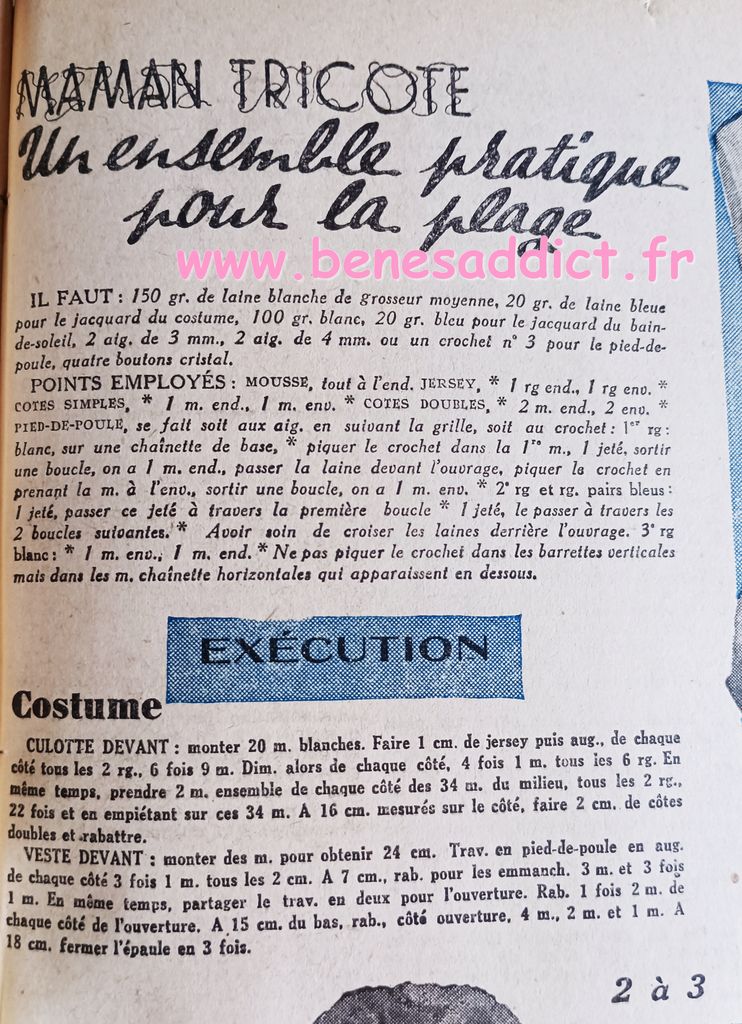 MAMAN TRICOTE
Un ensemble pratique
pour la plage
www.benesaddict.fr
IL FAUT : 150 gr. de laine blanche de grosseur moyenne, 20 gr. de laine bleue
pour le jacquard du costume, 100 gr. blanc, 20 gr. bleu pour le jacquard du bain-
de-soleil, 2 aig. de 3 mm., 2 aig. de 4 mm. ou un crochet n° 3 pour le pied-de-
poule, quatre boutons cristal.
POINTS EMPLOYÉS : MOUSSE, tout à l'end. JERSEY, * 1 rg end., 1 rg env. *
COTES SIMPLES, * 1 m. end., 1 m. env. * COTES DOUBLES, * 2 m. end., 2 env. *
PIED-DE-POULE, se fait soit aux aig. en suivant la grille, soit au crochet : 1er rg :
blanc, sur une chaînette de base, * piquer le crochet dans la 1re m., 1 jeté, sortir
une boucle, on a 1 m. end., passer la laine devant l'ouvrage, piquer le crochet en
prenant la m. à l'env., sortir une boucle, on a 1 m. env. * 2e rg et rg. pairs bleus :
1 jeté, passer ce jeté à travers la première boucle * 1 jeté, le passer à travers les
2 boucles suivantes. * Avoir soin de croiser les laines derrière l'ouvrage. 3e rg
blanc : * 1 m. env., 1 m. end. * Ne pas piquer le crochet dans les barrettes verticales
mais dans les m. chaînette horizontales qui apparaissent en dessous.
EXÉCUTION
Costume
CULOTTE DEVANT : monter 20 m. blanches. Faire 1 cm. de jersey puis aug., de chaque
côté tous les 2 rg., 6 fois 9 m. Dim. alors de chaque côté, 4 fois 1 m. tous les 6 rg. En
même temps, prendre 2 m. ensemble de chaque côté des 34 m. du milieu, tous les 2 rg.,
22 fois et en empiétant sur ces 34 m. A 16 cm. mesurés sur le côté, faire 2 cm. de côtes
doubles et rabattre.
VESTE DEVANT : monter des m. pour obtenir 24 cm. Trav. en pied-de-poule en aug.
de chaque côté 3 fois 1 m. tous les 2 cm. A 7 cm., rab. pour les emmanch. 3 m. et 3 fois
1 m. En même temps, partager le trav. en deux pour l'ouverture. Rab. 1 fois 2 m. de
chaque côté de l'ouverture. A 15 cm. du bas, rab., côté ouverture, 4 m., 2 m. et 1 m. A
18 cm. fermer l'épaule en 3 fois.
2 à 3